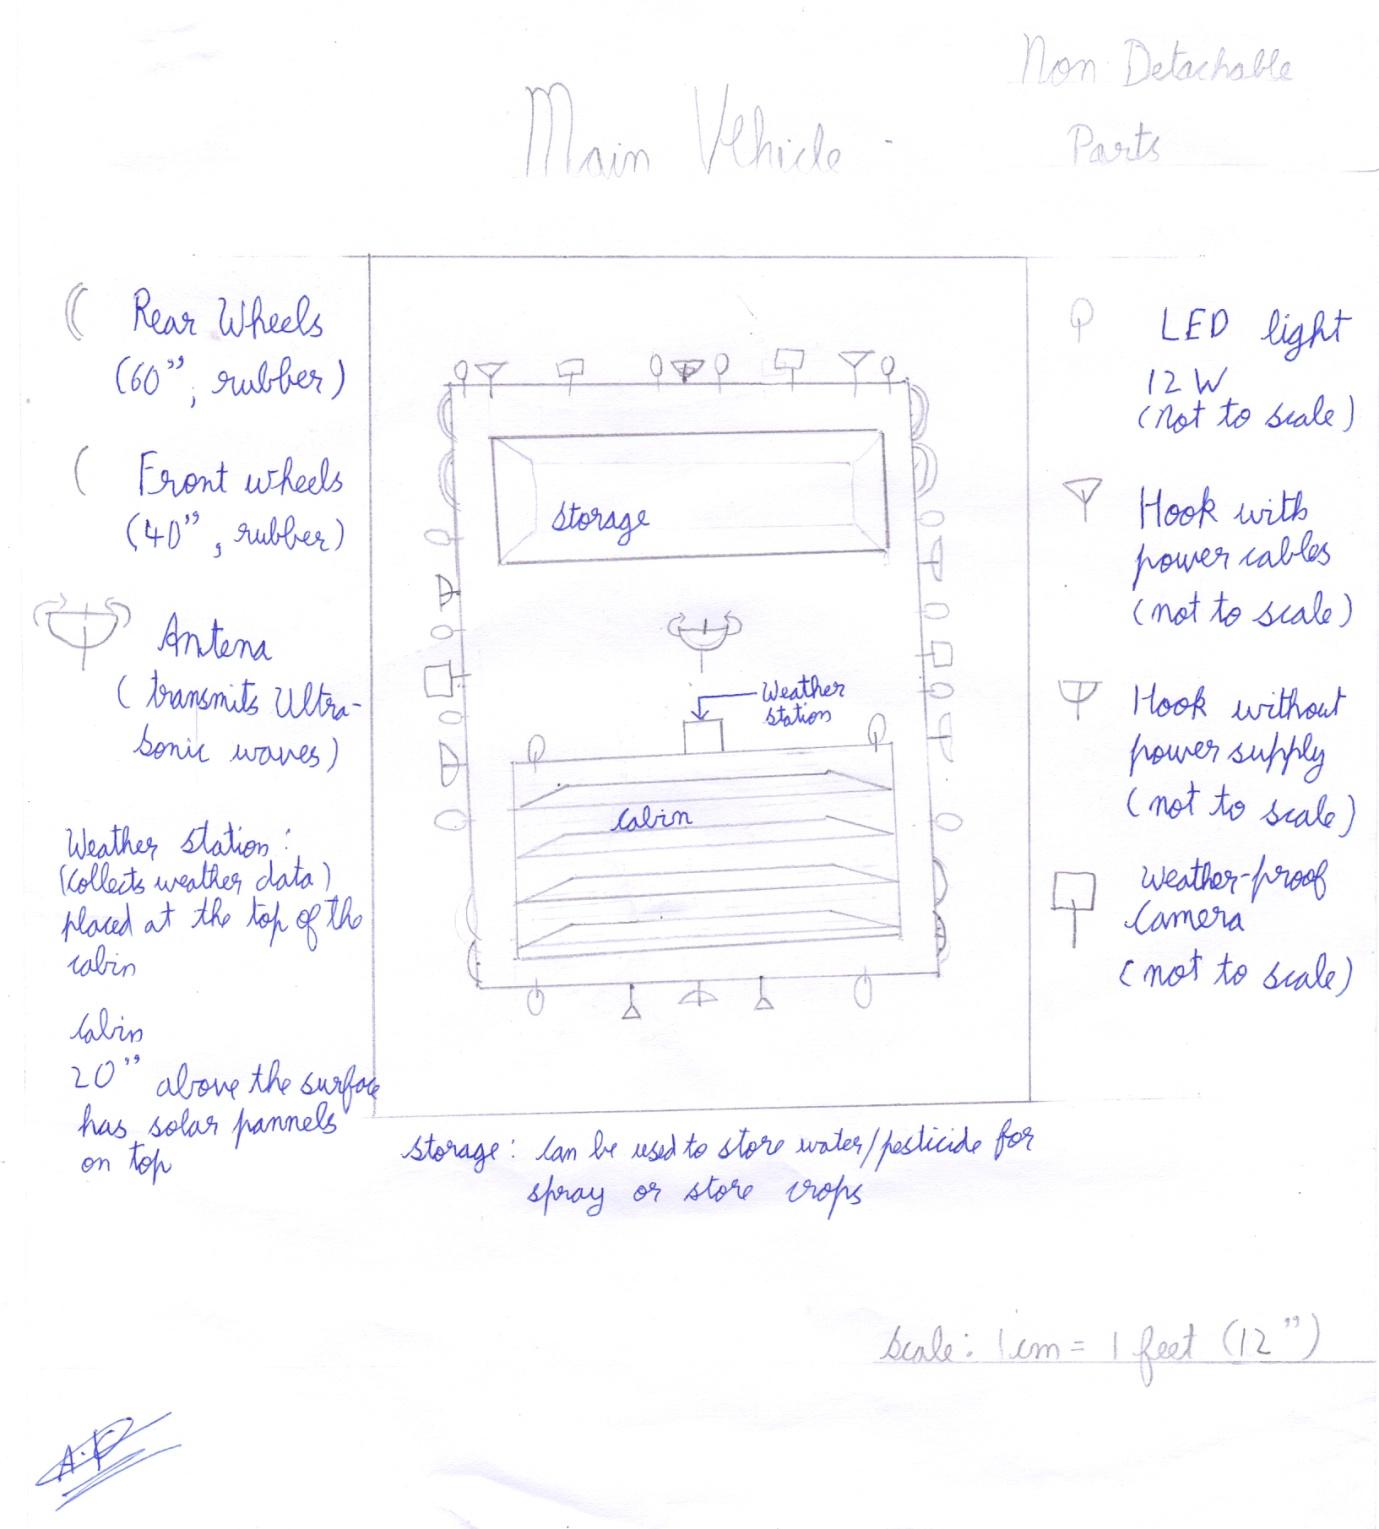 Non Detachable
Parts
Main Vehicle -
Rear Wheels
(60", rubber)
Front wheels
(40", rubber)
Antena
(transmits Ultra-
Sonic waves)
Weather station:
(Collects weather data)
placed at the top of the
cabin
Cabin
20" above the surface
has solar pannels
on top
storage
Weather
station
Cabin
LED light
12 W
(not to scale)
Hook with
power cables
(not to scale)
Hook without
power supply
(not to scale)
Weather-proof
Camera
(not to scale)
storage: Can be used to store water/pesticide for
spray or store crops
Scale: 1cm = 1 feet (12")
A.P